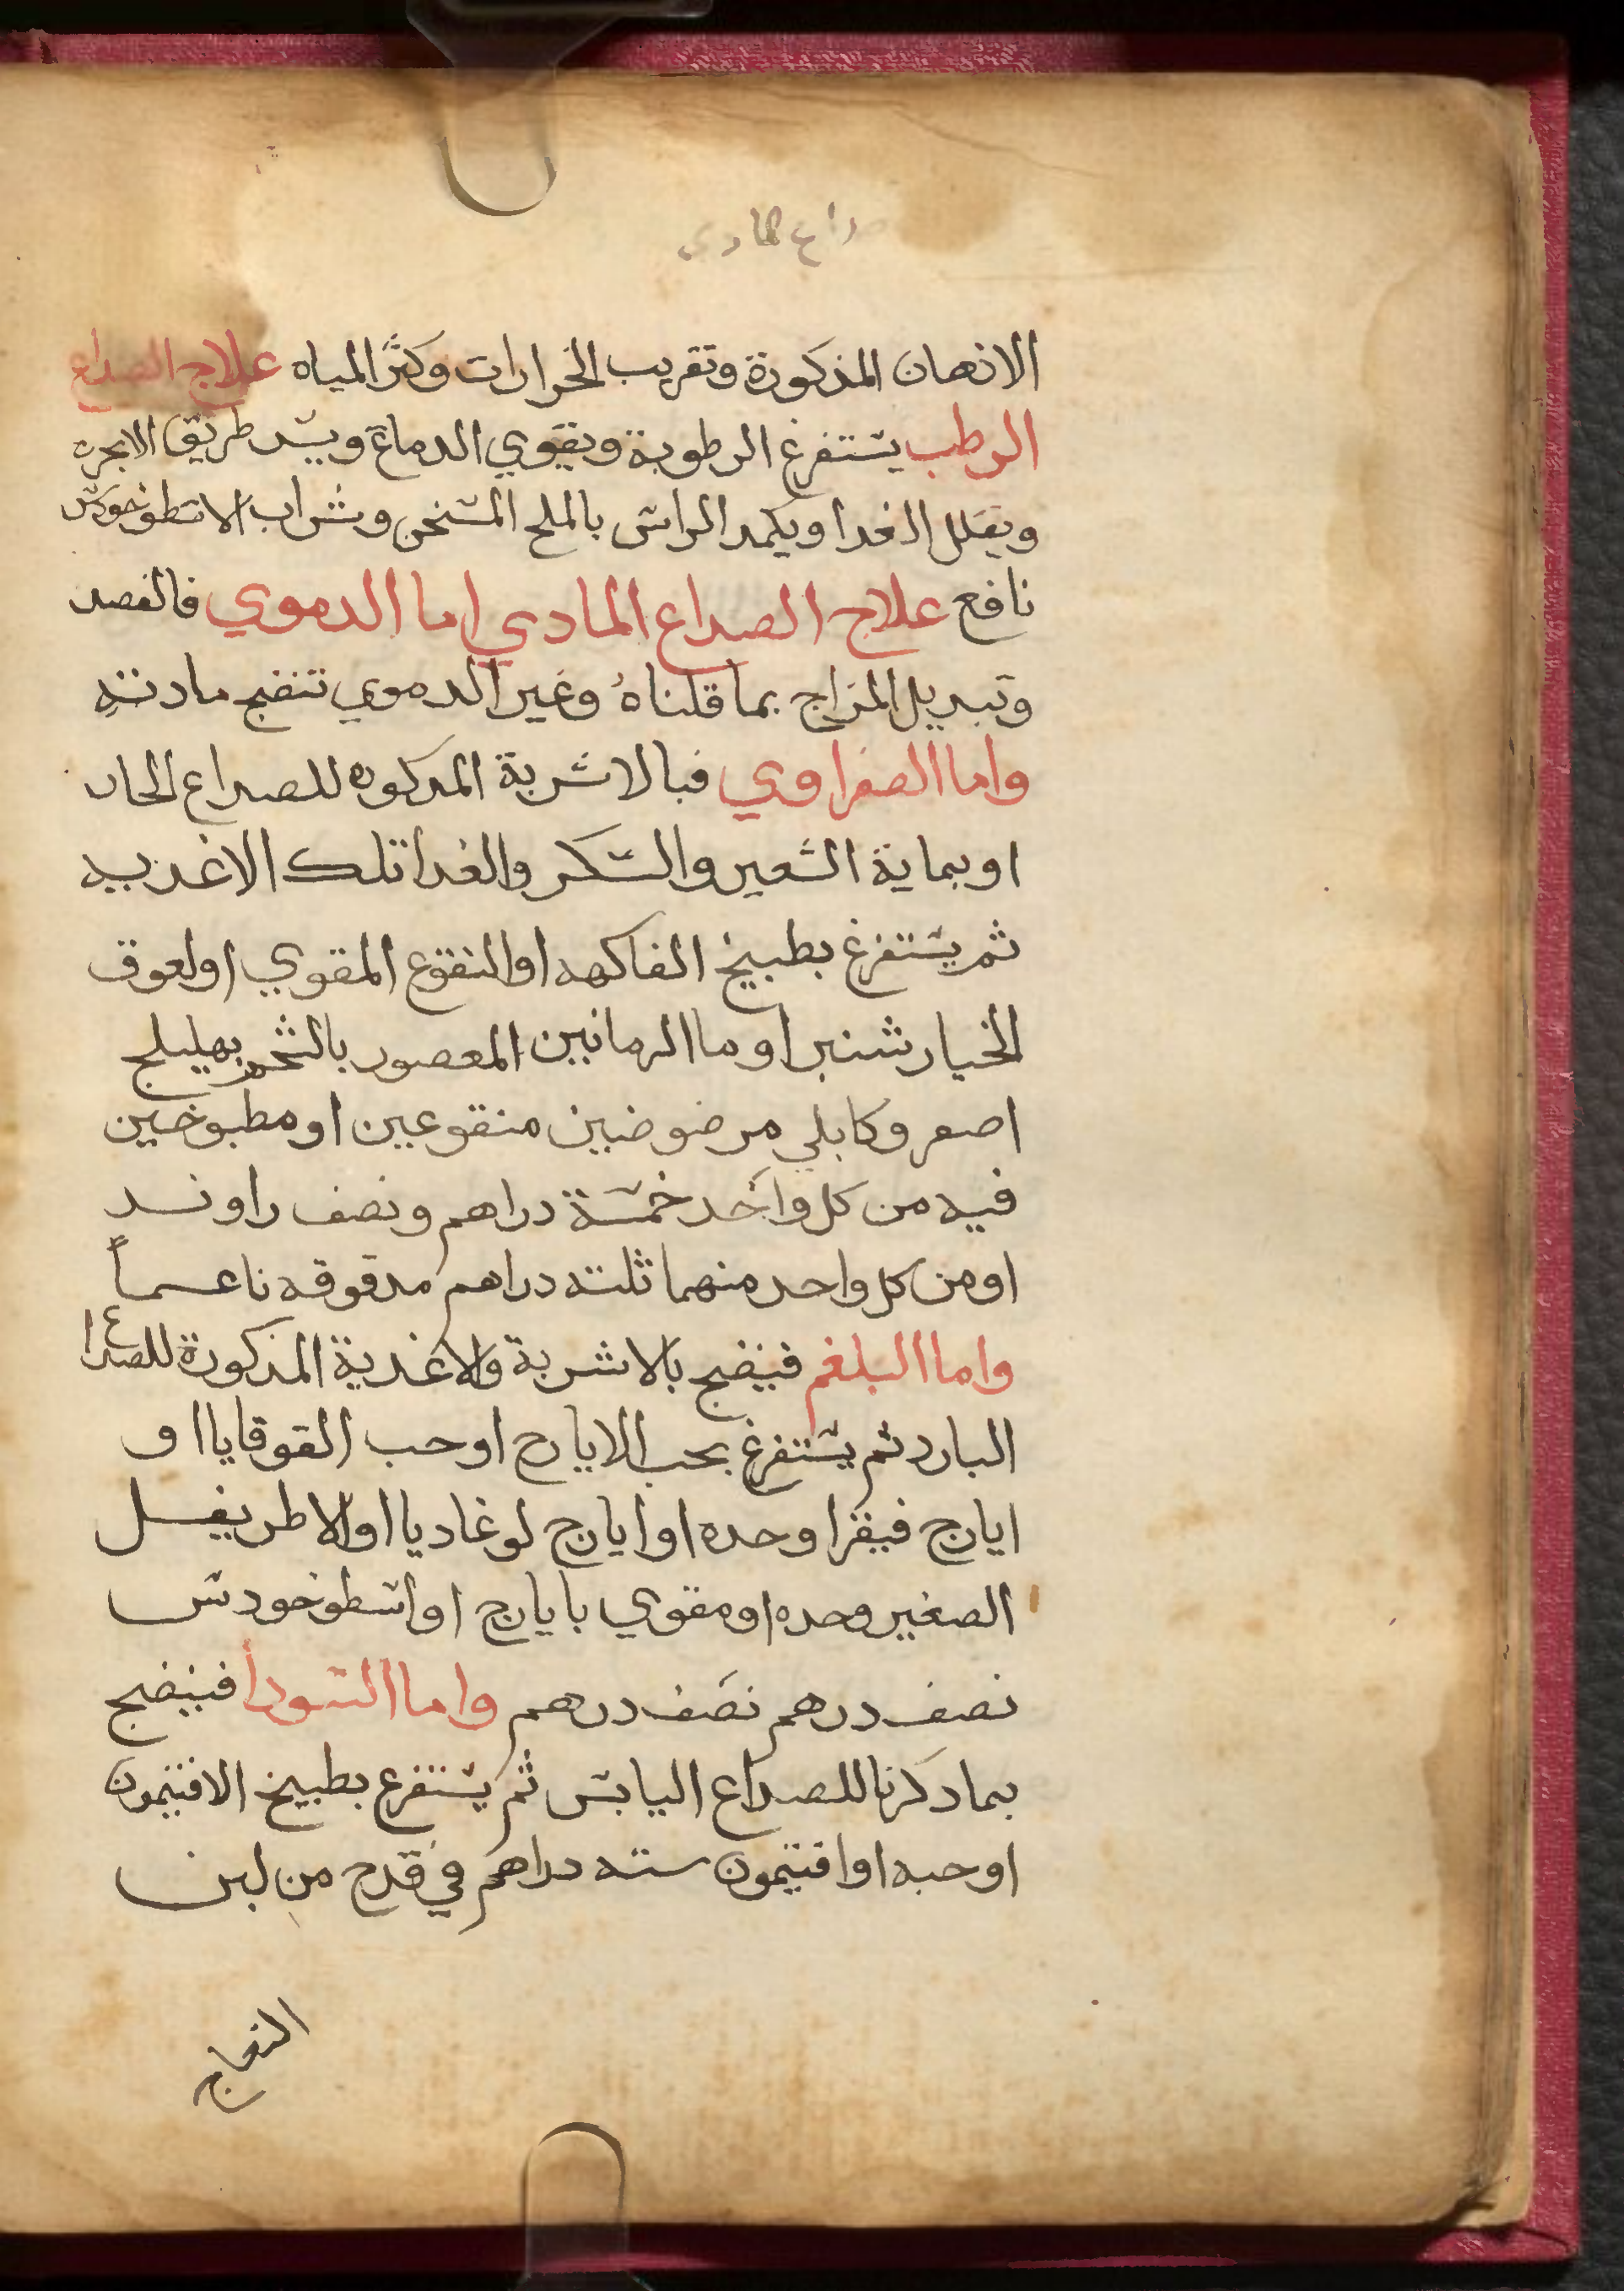 صداع المادي
الادهان المذكورة وتقريب الخرارات وكثر المياه علاج الصداع
الرطب يستفرغ الرطوبة ويقوي الدماغ ويسد طريق الابخره
ويقلل الغدا ويكمد الراس بالملح المسخن وشراب الاسطوخودس
نافع علاج الصداع المادي اما الدموي فالفصد
وتبديل المزاج بما قلناه وغير الدموي تنضج مادته
واما الصفراوي فبالاشربة المدكوره للصداع الحار
او بماية الشعير والسكر والغدا تلك الاغديه
ثم يستفرغ بطبيخ الفاكهه او النقوع المقوي او لعوق
الخيار شنبر او ما الرمانين المعصور بالشحم بهليلج
اصفر وكابلي مرضوضين منقوعين او مطبوخين
فيه من كل واحد خمسة دراهم ونصف راوند
او من كل واحد منهما ثلثه دراهم مدقوقه ناعماً
واما البلغم فينضج بالاشربة والاغدية المذكورة للصداع
البارد ثم يستفرغ بحب الايارج او حب القوقايا او
ايارج فيقرا وحده او ايارج لوغاديا او الاطريفل
الصغير وحده او مقوي بايارج او اسطوخودس
نصف درهم نصف درهم واما السودا فينضج
بما دكرنا للصداع اليابس ثم يستفرغ بطبيخ الافتيمون
او حبه او افتيمون سته دراهم في قدح من لبن
النعاج